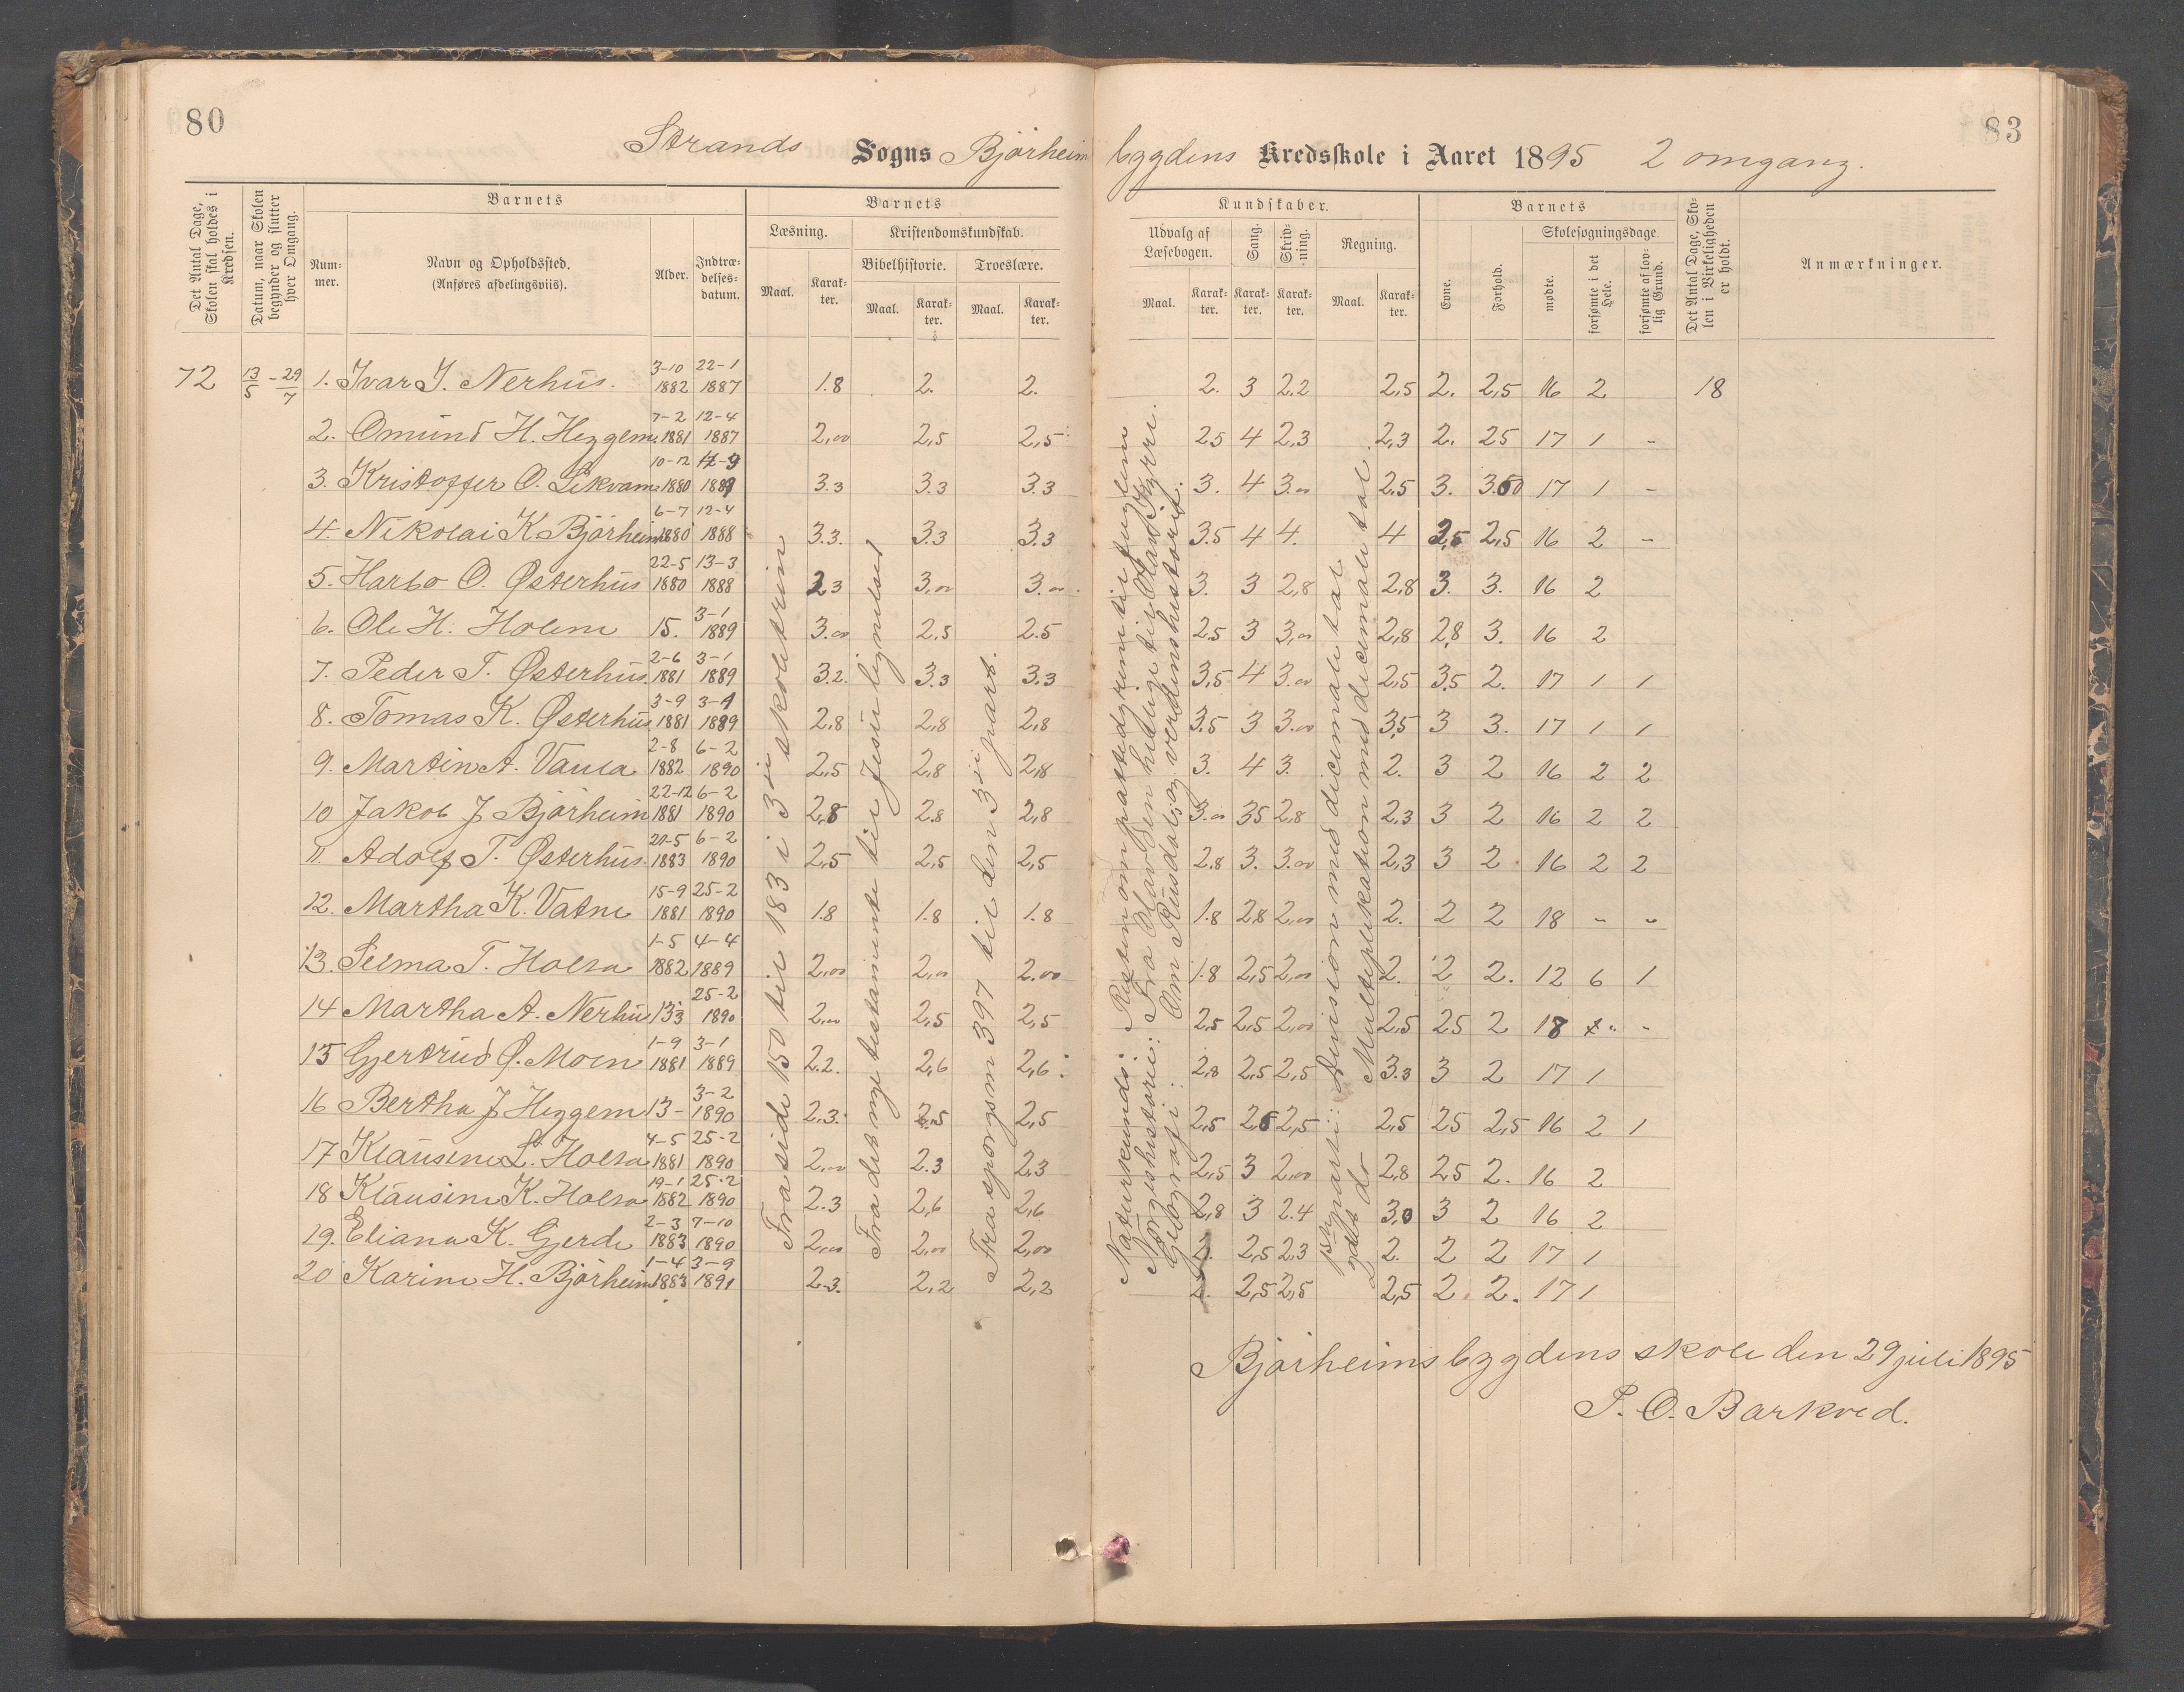 80
83
Strands Sogns Bjørheimbygdens Kredsskole i Aaret 1895 2 omgang.
Det Antal Dage, Skolen skal holdes i Kredsen.
Datum, naar Skolen begynder og slutter hver Omgang.
Barnets
Nummer.
Navn og Opholdssted.
(Anføres afdelingsviis).
Alder.
Indtrædelsesdatum.
Barnets
Læsning.
Maal.
Karakter.
Kristendomskundskab.
Bibelhistorie.
Maal.
Karakter.
Troeslære.
Maal.
Karakter.
Kundskaber.
Udvalg af Læsebogen.
Maal.
Karakter.
Sang.
Karakter.
Skrivning.
Karakter.
Regning.
Maal.
Karakter.
Barnets
Evne.
Forhold.
Skolesøgningsdage.
mødte.
forsømte i det Hele.
forsømte af lovlig Grund.
Det Antal Dage, Skolen i Virkeligheden er holdt.
Anmærkninger.
72 13/5 - 29/7 1. Ivar J. Nerhus. 3-10 1882 22-1 1887 1.8 2. 2. 2. 3 2.2 2,5 2. 2,5 16 2 18
2. Omund H. Heggem 7-2 1881 12-4 1887 2,00 2,5 2,5 25 4 2,3 2,3 2. 25 17 1 -
3. Kristoffer O. Likvam 10-12 1880 1889 3.3 3.3 3.3 3. 4 3.00 2,5 3. 3.50 17 1 -
4. Nikolai K. Bjørheim 6-7 1880 12-4 1888 3.3. 3.3 3.3 3.5 4 4. 4 2,5 16 2 -
5. Harbo O. Østerhus 22-5 1880 13-3 1888 2,3 3,00 3.00 3. 3 2,8 2,8 3. 3. 16 2
6. Ole H. Holem 15. 3-1 1889 3.00 2.5 2.5 2.5 3 3,00 2,8 2,8 3. 16 2
7. Peder T. Østerhus. 2-6 1881 3-1 1889 3.2. 3.3 3.3 3,5 4 3.00 2,5 3,5 2. 17 1 1
8. Tomas K. Østerhus 3-9 1881 1889 2.8 2,8 2,8 3.5 3 3.00 3,5 3 3. 17 1 1
9. Martin A. Vaula 2-8 1882 6-2 1890 2,5 2,8 2,8 3. 4 3. 2. 3 2 16 2 2
10 Jakob J Bjørheim 22-12 1881 6-2 1890 2,8 2.8 2,8 3.00 35 2,8 2.3 3 2 16 2 2
11. Adolf T. Østerhus. 1883 6-2 1890 2,5 2,5 2,5 2.8 3. 3.00 2,3 3 2 16 2 2
12. Martha K. Vatne 15-9 1881 25-2 1890 1.8 1.8 1.8 1.8 28 2,00 2. 2 2 18 - -
13. Selma T. Holta 1-5 1882 4-4 1889 2,00 2,00 2.00 1.8 2,5 2,00 2. 2 2. 12 6 1
14 Martha A. Nerhus 13 25-2 1890 2,00 2,5 2,5 2,5 2,5 2,00 2,5 25 2 18 -
15 Gjertrud Ø. Moen 1-9 1881 3-1 1889 2.2. 2,6 2,6 2,8 2,5 2,5 3.3 3 2 17 1
16 Bertha J Heggem 13- 3-2 1890 2.3. 2,5 2,5 2,5 2,5 2,5 25 2,5 16 2 1
17 Klausine L. Holta 4-5 1881 25-2 1890 2,00 2.3 2,3 2,5 3 2,00 2,8 25 2. 16 2
18 Klausine K. Holta 19-1 1882 25-2 1890 2.3 2,6 2,6 2,8 3 2.4 3,0 3 2 16 2
19. Eliana K. Gjerde 2-3 1883 7-10 1890 2,00 2,00 2,00 2. 2,5 2.3 2. 2 2 17 1
20 Karine H. Bjørheim 1-4 1883 3-9 1891 2.3. 2,2 2,2 2. 2,5 2,5 2,5 2 2. 17 1
Fra side 150 til 183 i 3die skoletrin
Fra det nye testamente til Jesu lignelser
Fra spørgsm 397 til den 3die part.
Naturkunds: Resten om pattedyrene til fuglene
Norgeshistorie: Fra Olav den hellige til Olav Kyrri.
Geografi: Om Rusdal og verdenshistorie.
1ste parti: Division med decimale tal
2det do Multiplikation med decimale tal.
Bjørheimsbygdens skole den 29 juli 1895
P. O. Barkved.